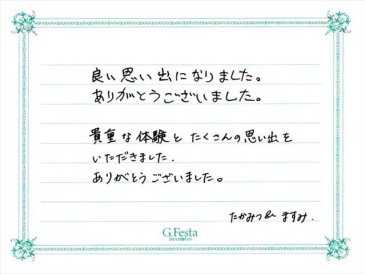 良い思い出になりました。
ありがとうございました。
貴重な体験と たくさんの思い出を
いただきました.
ありがとうございました。
たかみつ& ますみ.
G.Festa
DIAMOND